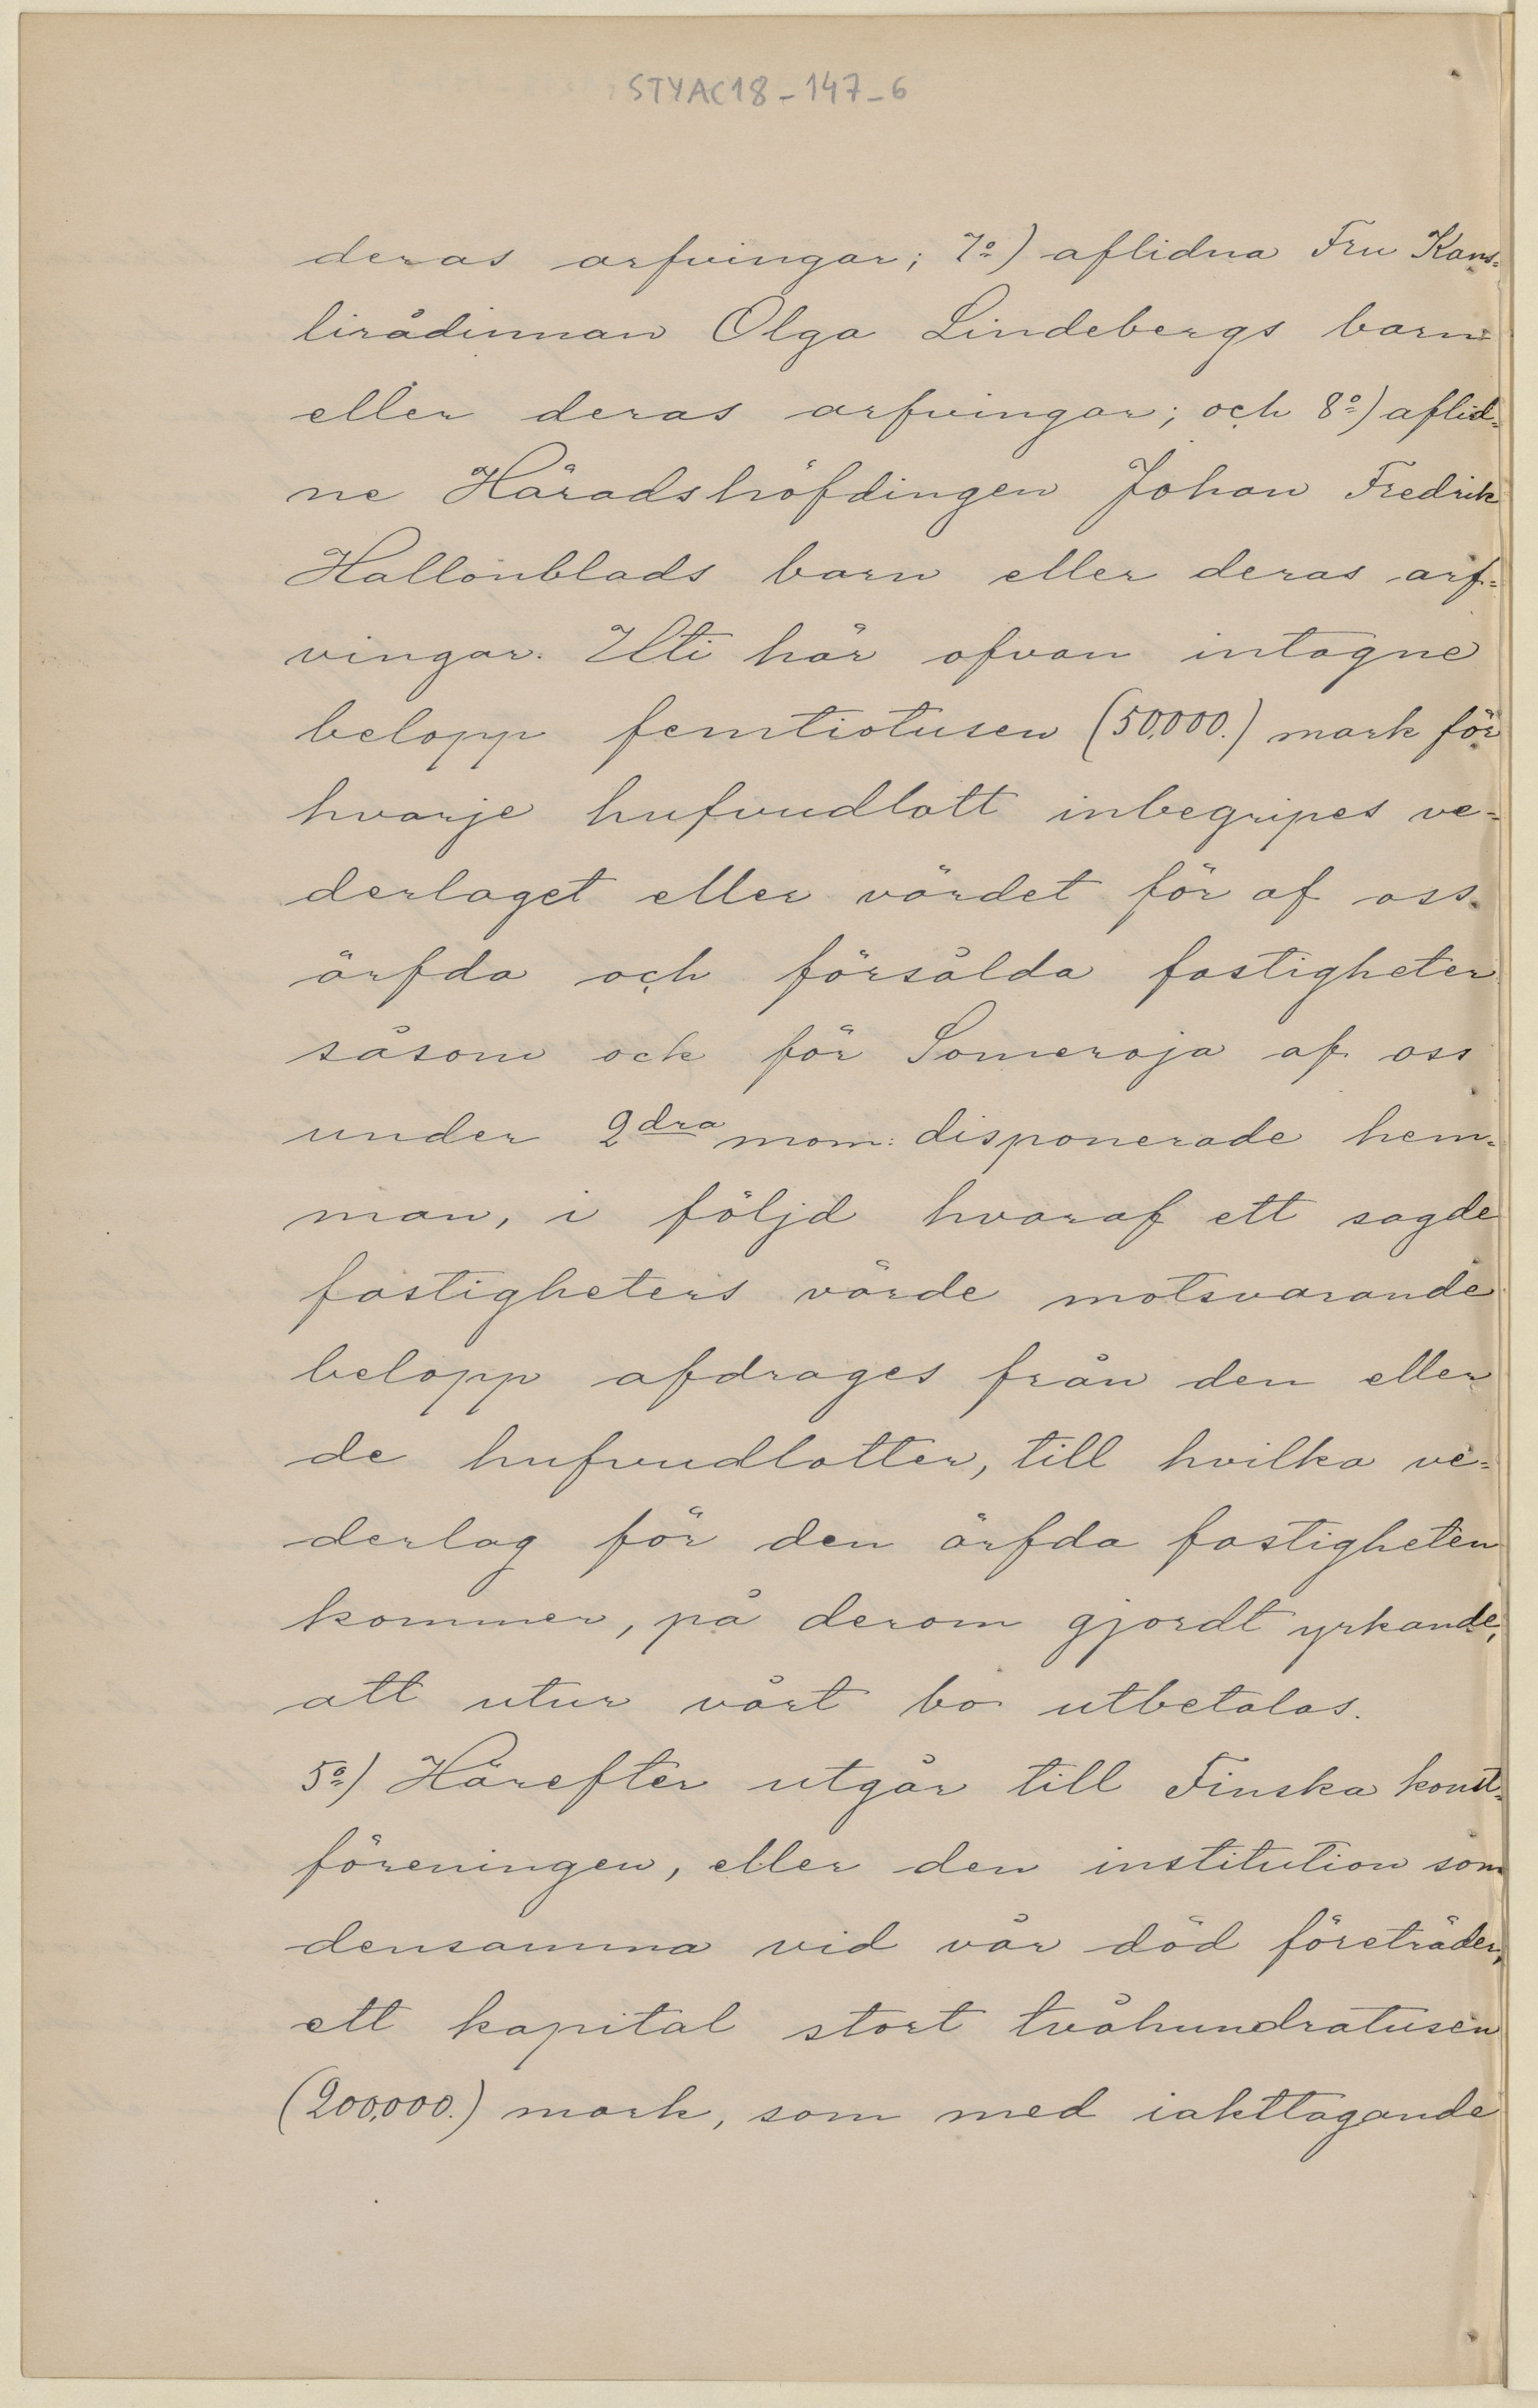 STYAC18-147-6
deras arfvingar; 7º) aflidna Fru Kans=
lirådinnan Olga Lindebergs barn
eller deras arfvingar; och 8º) aflid=
ne Häradshöfdingen Johan Fredrik
Hallonblads barn eller deras arf=
vingar. Uti här ofvan intagne
belopp femtiotusen (50,000.) mark för
hvarje hufvudlott inbegripes ve=
derlaget eller värdet för af oss
ärfda och försålda fastigheter
såsom ock för Someroja af oss
under 2dra mom: disponerade hem=
man, i följd hvaraf ett sagde
fastigheters värde motsvarande
belopp afdrages från den eller
de hufvudlotter, till hvilka ve=
derlag för den ärfda fastigheten
kommer, på derom gjordt yrkande,
att utur vårt bo utbetalas.
5º) Härefter utgår till Finska konst=
föreningen, eller den institution som
densamma vid vår död företräder,
ett kapital stort tvåhundratusen
(200,000.) mark, som med iakttagande